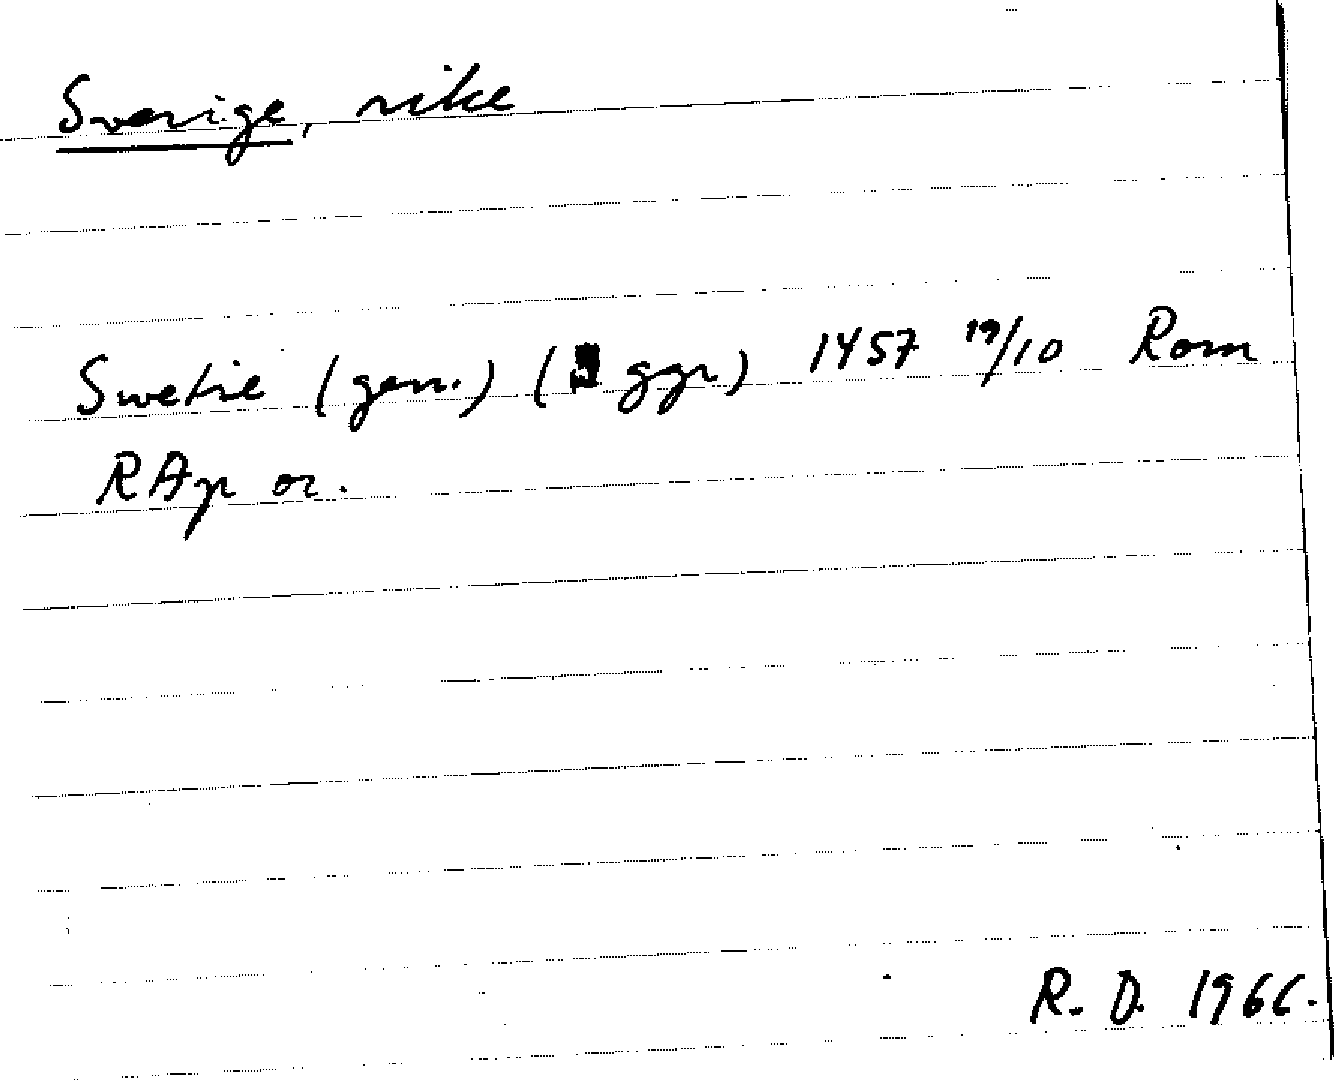 Sverige, rike
Swetie (gen.) (3 ggr) 1457 19/10 Rom
RAp or.
R. D. 1966.